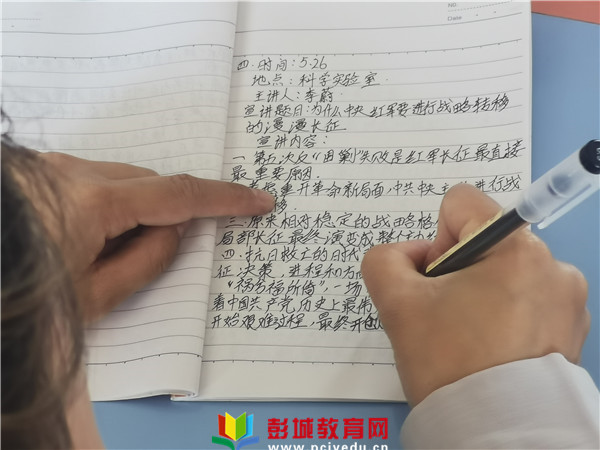 NO.
Date
四.时间:5.26
地点:科学实验室
主讲人:李蔚
宣讲题目:为什么中央红军要进行战略转移
的漫漫长征
宣讲内容:
一.第五次反“围剿”失败是红军长征最直接
最重要原因.
重开革命新局面,中共中央
进行战
移.
三.原来相对稳定的战略格
局部长征最终演变成整
四.抗日救亡的时代
征决策,进程和方
“祸兮福所倚”.一场
着中国共产党历史上最伟
开始艰难过程,最终开创
彭城教育网
www.pcjyedu.cn